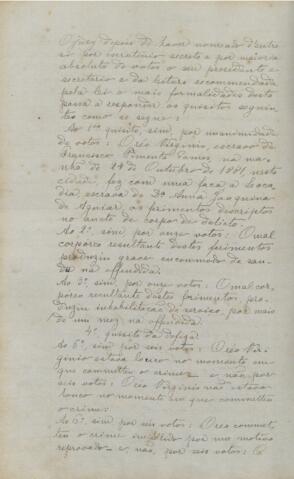 O jury depois de haver nomeado d'entre
si por escrutinio secreto e por maioria
absoluta de votos o seu presidente e
secretario e da leitura recommendada
pela lei e mais formalidades desta
passa a responder os quisitos seguin-
tes como se segue:
Ao 1º quisito, sim por unanimidade
de votos: O réo Virginio, escravo de
Francisco Pimenta Gomes, na ma-
nhã de 24 de Outubro de 1881, nesta
cidade, fez com uma faca a Leoca-
dia, escrava de D. Anna Joaquina
de Aguiar, os ferimentos descriptos
no auto de corpo de delicto.
Ao 2º, sim por onze votos: O mal
corporeo resultante destes ferimentos
produziu grave encommodo de sau-
de na offendida.
Ao 3º, sim, por onze votos: O mal cor-
poreo resultante destes ferimentos, pro-
duziu inhabilitação de serviço por mais
de um mez na offendida.
4º quisito da defeza
Ao 6º, sim, por seis votos: O réo Vir-
ginio estava louco no momento em
que commetteu o crime; e não, por
seis votos: O réo Virginio não estava
louco no momento em que commetteu
o crime.
sim por seis votos: O réo commet-
teu o crime impellido por um motivo
reprovado e não, por seis votos: O